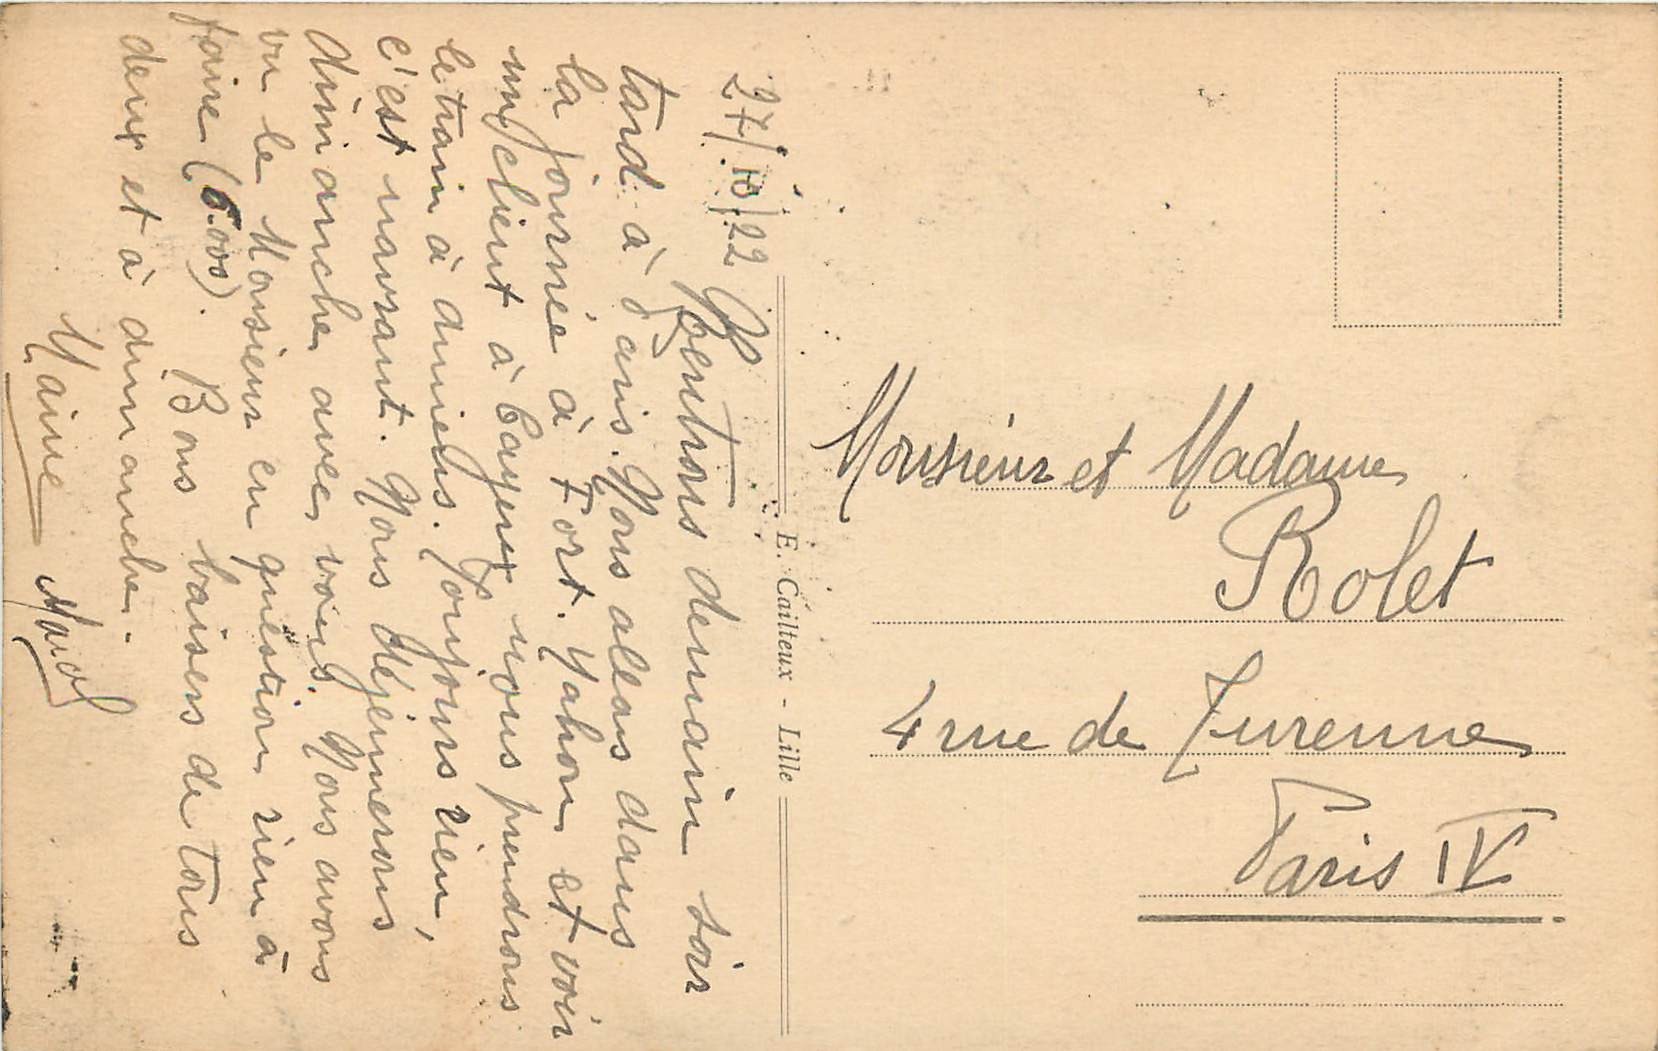 27/10/22 Rentrons demain soir
tard à Paris. Nous allons dans
la journée à Fort. Mahon et voir
un client à Cayeux nous prendrons
le train à Amiens. Toujours rien,
c'est navrant. Nous déjeunerons
dimanche avec vous. Nous avons
vu le Monsieur en question rien à
faire (6.000). Bons baisers de tous
deux et à dimanche.
E. Cailteux - Lille
Monsieur et Madame
Rolet
4 rue de Turenne
Paris IV